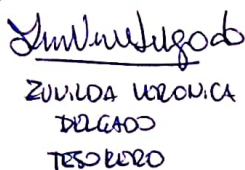 ZUVILDA VERONICA
DELGADO
TESORERO